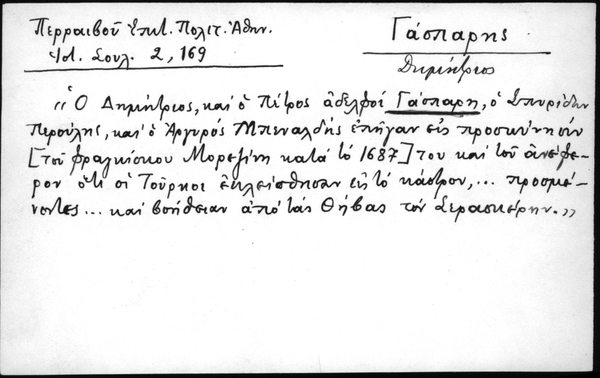 Περραιβοῦ Ἐπιτ. Πολιτ. Ἀθην.
Ἱστ. Σουλ. 2, 169
Γάσπαρης
Δημήτριος
"Ὁ Δημήτριος, καὶ ὁ Πέτρος ἀδελφοί Γάσπαρη, ὁ Σπυρίδων
Περούλης, καὶ ὁ Ἀργυρός Μπεναλδής ἐπῆγαν εἰς προσκύνησίν
[τοῦ φραγκίσκου Μοροζίνη κατά τό 1687] του καὶ τοῦ ἀνέφε-
ρον ὅτι οἱ Τοῦρκοι ἐκλείσθησαν εἰς τό κάστρον, ... προσμέ-
νοντες ... καὶ βοήθειαν ἀπό τάς Θήβας τόν Σερασκέρην."